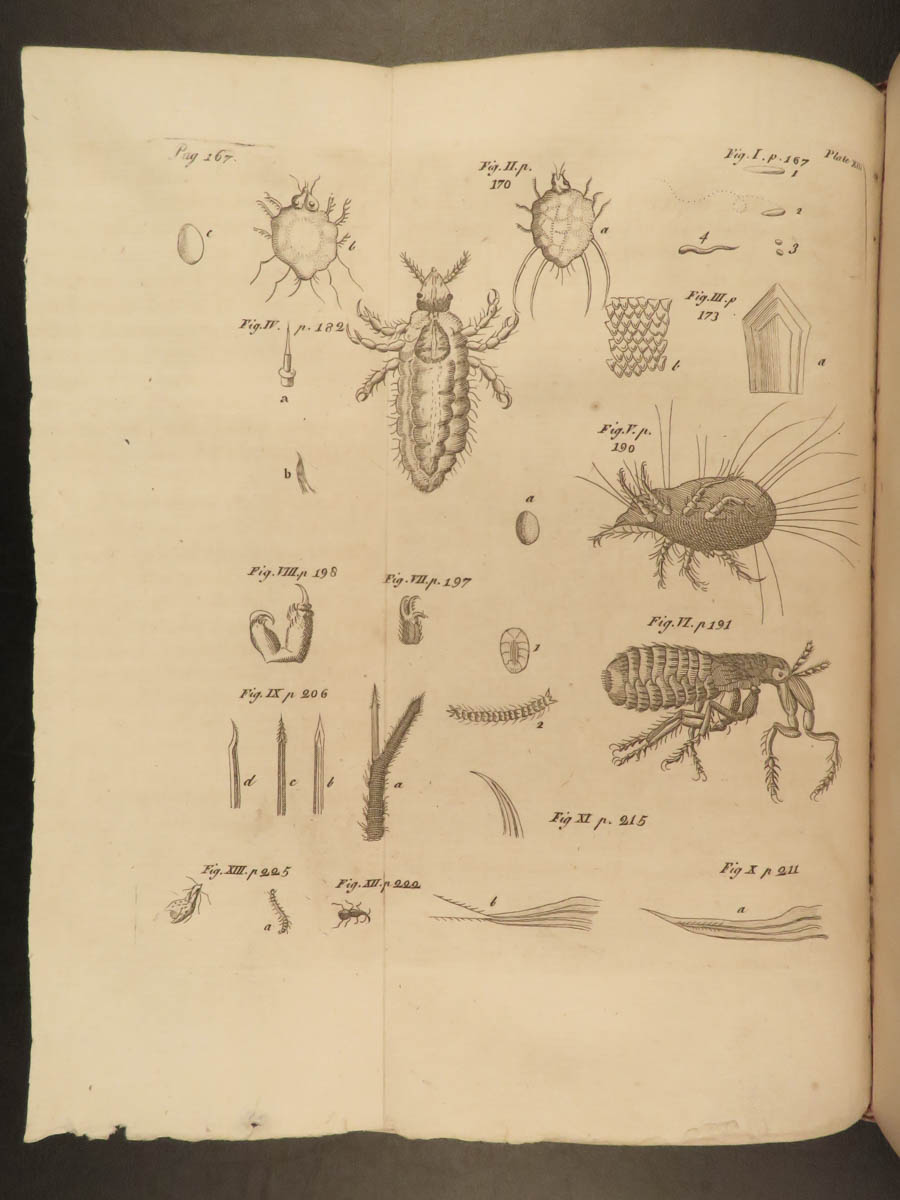 Pag 167.
Fig. II. p. 170
Fig. I. p. 167
Plate
1
2
3
4
c
b
a
Fig. III. p 173
b
a
Fig. IV. p. 182
a
b
Fig. V. p. 190
a
Fig. VIII. p 198
Fig. VII. p. 197
Fig. VI. p 191
1
2
Fig. IX p 206
d
c
b
a
Fig XI p. 215
Fig. XIII. p 225
a
Fig. XII. p 222
b
Fig X p 211
a